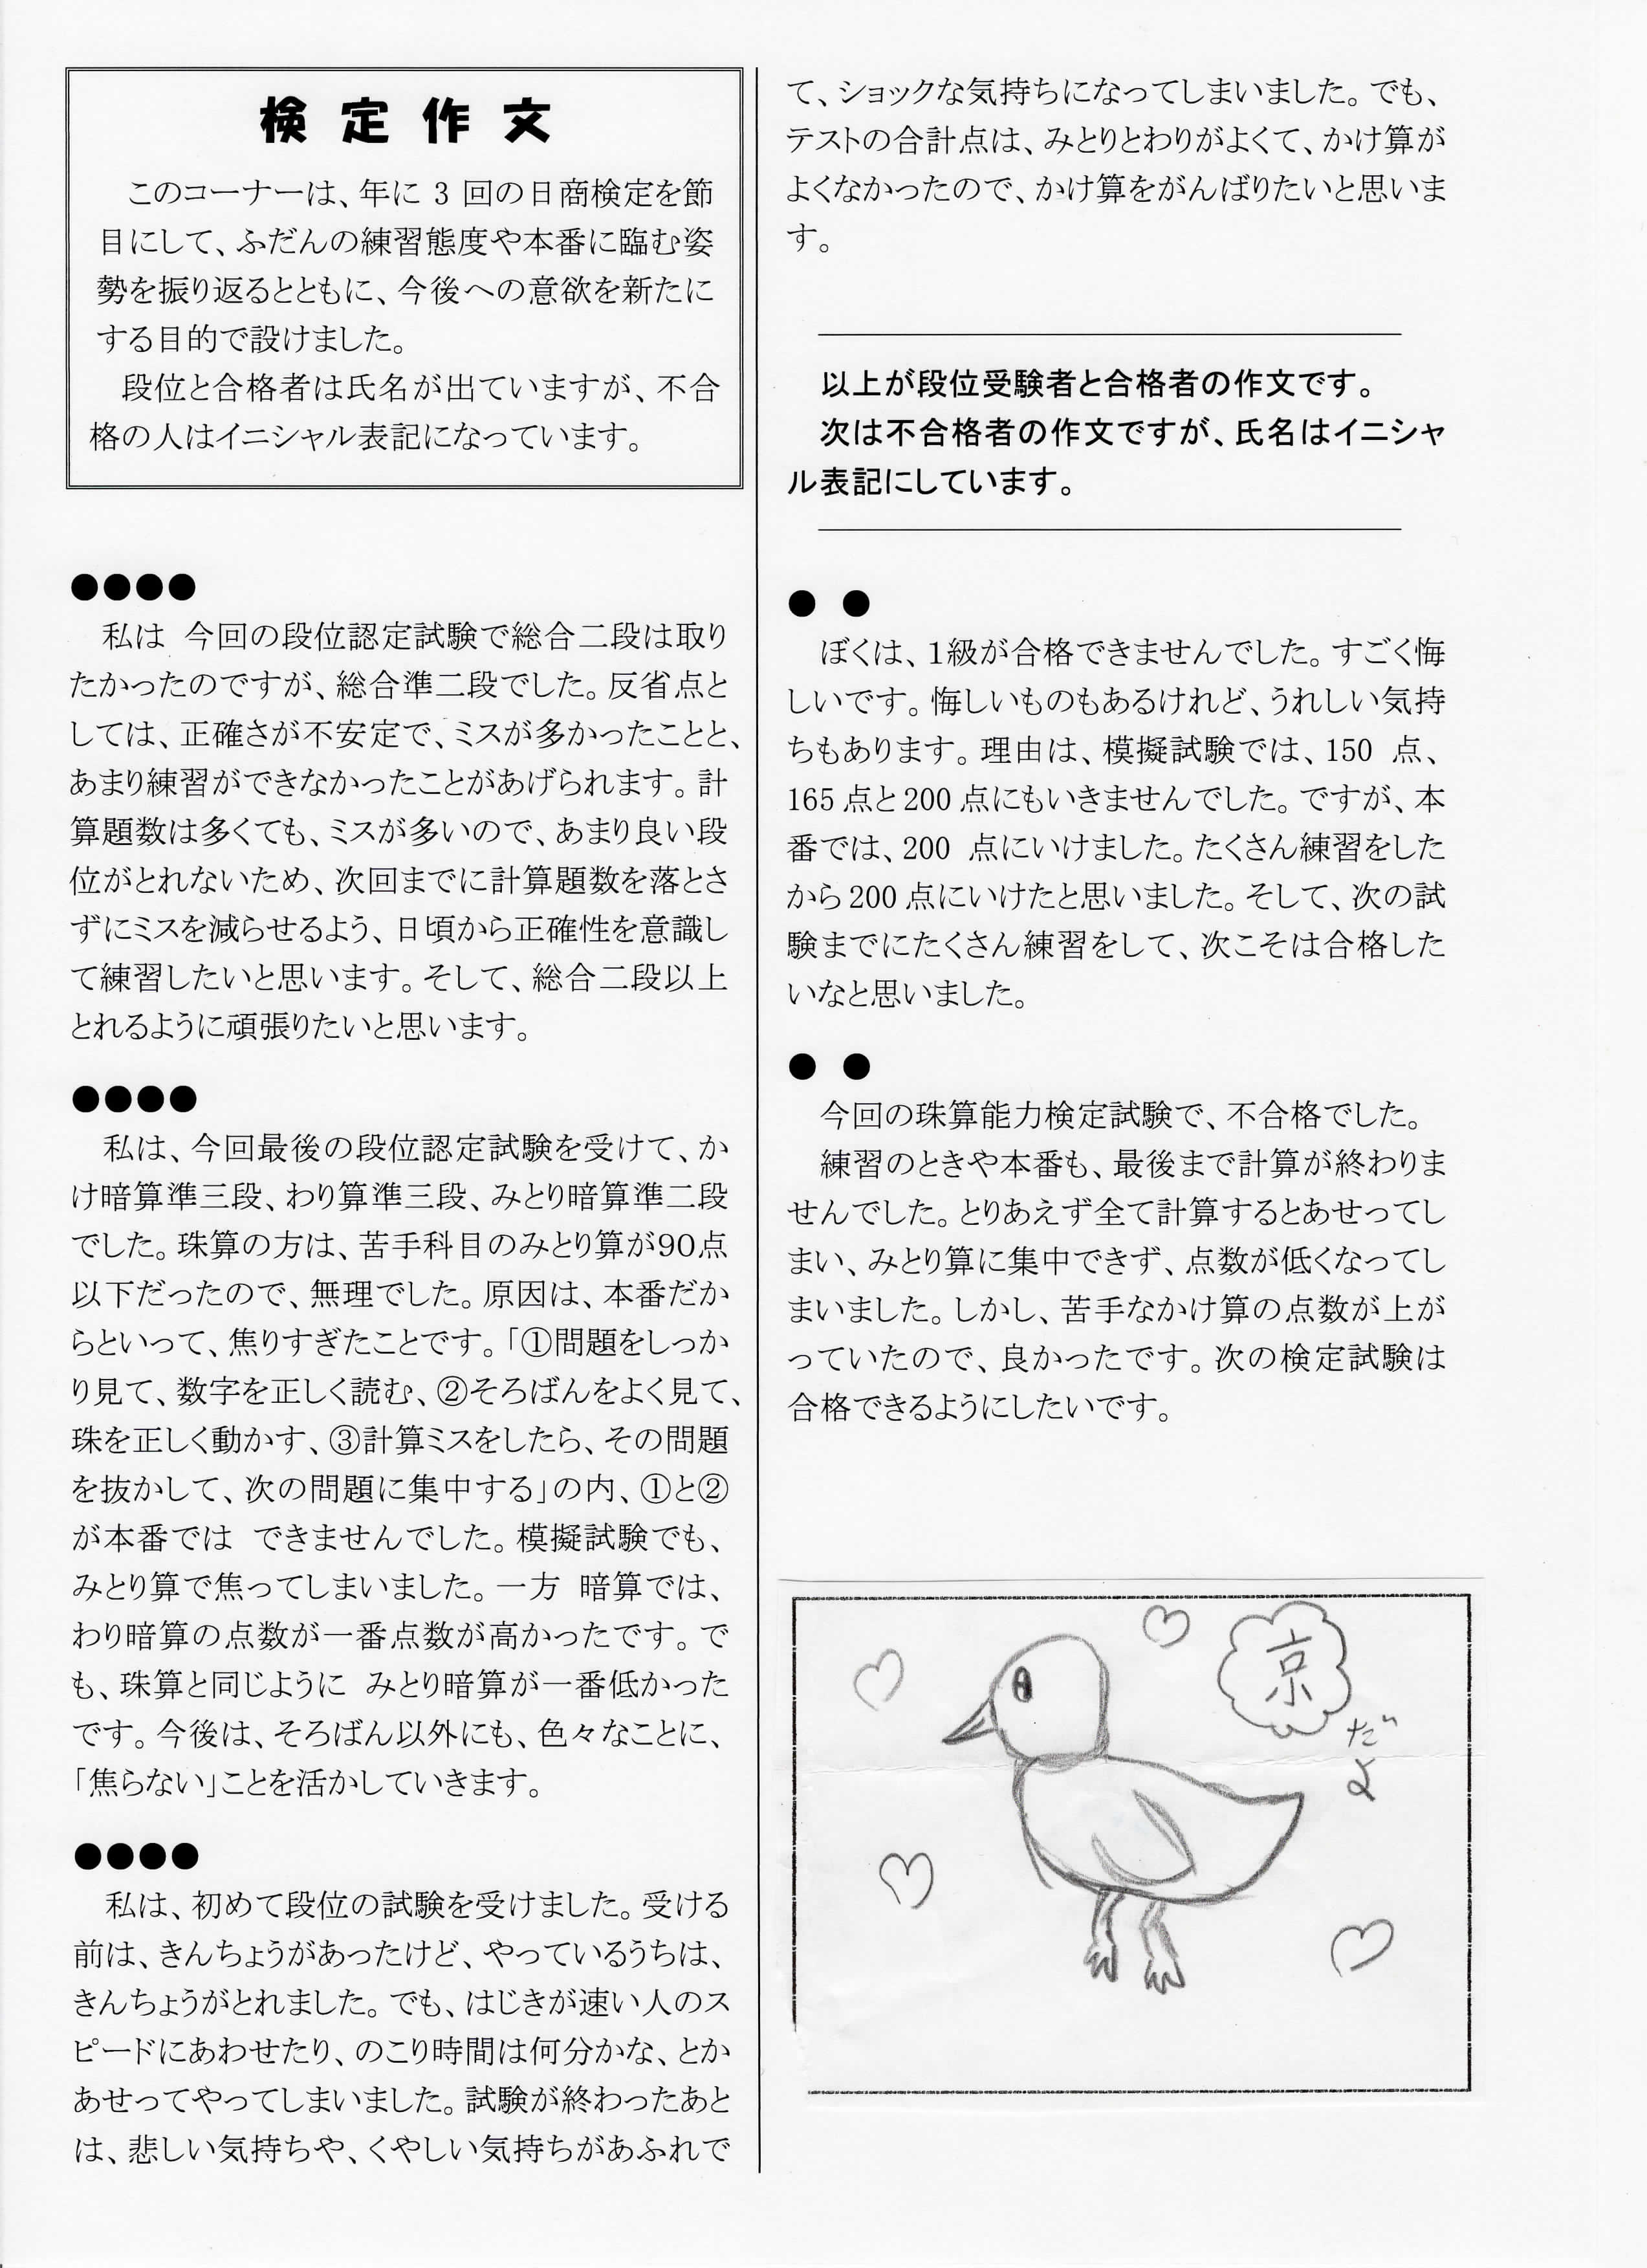 検定作文
このコーナーは、年に 3 回の日商検定を節
目にして、ふだんの練習態度や本番に臨む姿
勢を振り返るとともに、今後への意欲を新たに
する目的で設けました。
段位と合格者は氏名が出ていますが、不合
格の人はイニシャル表記になっています。
●●●●
私は 今回の段位認定試験で総合二段は取り
たかったのですが、総合準二段でした。反省点と
しては、正確さが不安定で、ミスが多かったことと、
あまり練習ができなかったことがあげられます。計
算題数は多くても、ミスが多いので、あまり良い段
位がとれないため、次回までに計算題数を落とさ
ずにミスを減らせるよう、日頃から正確性を意識し
て練習したいと思います。そして、総合二段以上
とれるように頑張りたいと思います。
●●●●
私は、今回最後の段位認定試験を受けて、か
け暗算準三段、わり算準三段、みとり暗算準二段
でした。珠算の方は、苦手科目のみとり算が90点
以下だったので、無理でした。原因は、本番だか
らといって、焦りすぎたことです。「①問題をしっか
り見て、数字を正しく読む、②そろばんをよく見て、
珠を正しく動かす、③計算ミスをしたら、その問題
を抜かして、次の問題に集中する」の内、①と②
が本番では できませんでした。模擬試験でも、
みとり算で焦ってしまいました。一方 暗算では、
わり暗算の点数が一番点数が高かったです。で
も、珠算と同じように みとり暗算が一番低かった
です。今後は、そろばん以外にも、色々なことに、
「焦らない」ことを活かしていきます。
●●●●
私は、初めて段位の試験を受けました。受ける
前は、きんちょうがあったけど、やっているうちは、
きんちょうがとれました。でも、はじきが速い人のス
ピードにあわせたり、のこり時間は何分かな、とか
あせってやってしまいました。試験が終わったあと
は、悲しい気持ちや、くやしい気持ちがあふれで
て、ショックな気持ちになってしまいました。でも、
テストの合計点は、みとりとわりがよくて、かけ算が
よくなかったので、かけ算をがんばりたいと思いま
す。
以上が段位受験者と合格者の作文です。
次は不合格者の作文ですが、氏名はイニシャ
ル表記にしています。
● ●
ぼくは、1級が合格できませんでした。すごく悔
しいです。悔しいものもあるけれど、うれしい気持
ちもあります。理由は、模擬試験では、150 点、
165点と200点にもいきませんでした。ですが、本
番では、200 点にいけました。たくさん練習をした
から200点にいけたと思いました。そして、次の試
験までにたくさん練習をして、次こそは合格した
いなと思いました。
● ●
今回の珠算能力検定試験で、不合格でした。
練習のときや本番も、最後まで計算が終わりま
せんでした。とりあえず全て計算するとあせってし
まい、みとり算に集中できず、点数が低くなってし
まいました。しかし、苦手なかけ算の点数が上が
っていたので、良かったです。次の検定試験は
合格できるようにしたいです。
京
だよ